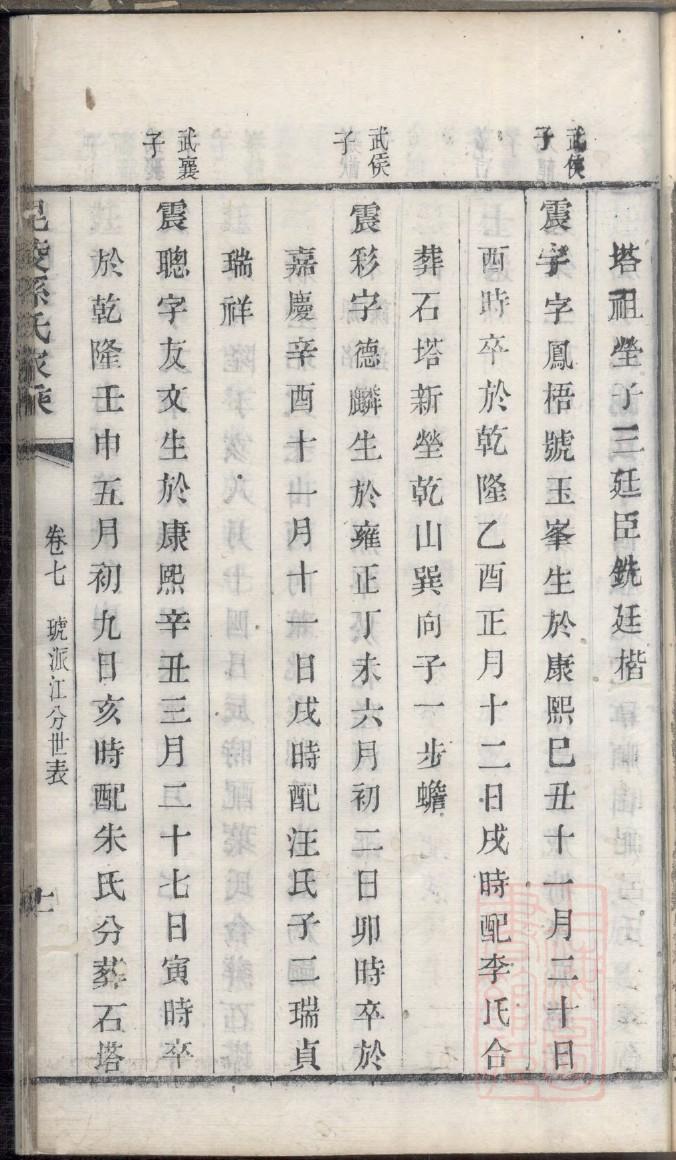 塔祖塋子三廷臣銑廷楷
武侯子
震宇字鳳梧號玉峯生於康熙己丑十一月二十日
酉時卒於乾隆乙酉正月十二日戌時配李氏合
葬石塔新塋乾山巽向子一步蟾
武侯子
震彩字德麟生於雍正丁未六月初二日卯時卒於
嘉慶辛酉十一月十一日戌時配汪氏子二瑞貞
瑞祥
武襄子
震聰字友文生於康熙辛丑三月二十七日寅時卒
於乾隆壬申五月初九日亥時配朱氏分葬石塔
毘陵孫氏家乘
卷七 琥派江分世表